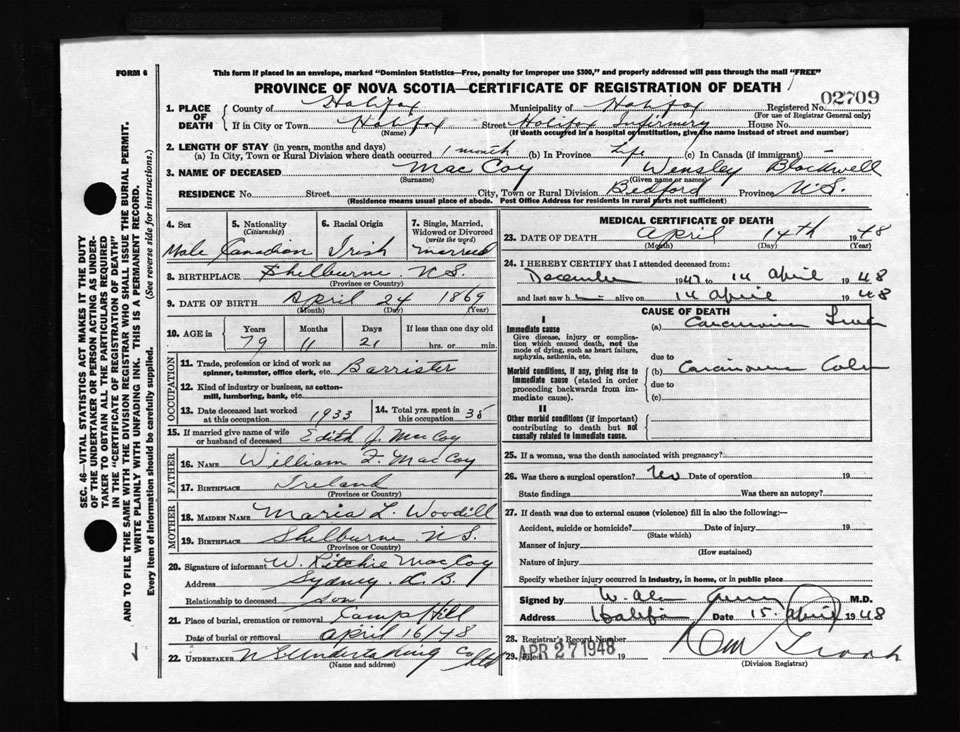 FORM 6
This form if placed in an envelope, marked "Dominion Statistics—Free, penalty for improper use $300," and properly addressed will pass through the mail "FREE"
PROVINCE OF NOVA SCOTIA—CERTIFICATE OF REGISTRATION OF DEATH
02709
1. PLACE OF DEATH County of Halifax Municipality of Halifax Registered No.
(For use of Registrar General only)
If in City or Town Halifax Street Halifax Infirmary House No.
(Name) (If death occurred in a hospital or institution, give the name instead of street and number)
2. LENGTH OF STAY (in years, months and days)
(a) In City, Town or Rural Division where death occurred 1 month (b) In Province Life (c) In Canada (if immigrant) —
3. NAME OF DECEASED MacCoy Wensley Blackwell
(Surname) (Given name or names)
RESIDENCE No. Street City, Town or Rural Division Bedford Province N.S.
(Residence means usual place of abode. Post Office Address for residents in rural parts not sufficient)
4. Sex 5. Nationality (Citizenship) 6. Racial Origin 7. Single, Married, Widowed or Divorced (write the word)
Male Canadian Irish married
8. BIRTHPLACE Shelburne N.S.
(Province or Country)
9. DATE OF BIRTH April 24 1869
(Month) (Day) (Year)
10. AGE in Years Months Days If less than one day old
79 11 21 hrs. or min.
OCCUPATION
11. Trade, profession or kind of work as spinner, teamster, office clerk, etc. Barrister
12. Kind of industry or business, as cotton-mill, lumbering, bank, etc.
13. Date deceased last worked at this occupation 1933 14. Total yrs. spent in this occupation 35
15. If married give name of wife or husband of deceased Edith J. MacCoy
FATHER
16. NAME William F. MacCoy
17. BIRTHPLACE Ireland
(Province or Country)
MOTHER
18. MAIDEN NAME Maria L. Woodill
19. BIRTHPLACE Shelburne N.S.
(Province or Country)
20. Signature of informant W. Ritchie MacCoy
Address Sydney C.B.
Relationship to deceased son
21. Place of burial, cremation or removal Camp Hill
Date of burial or removal April 16/48
22. UNDERTAKER N S Undertaking Co Ltd
(Name and address)
MEDICAL CERTIFICATE OF DEATH
23. DATE OF DEATH April 14th 1948
(Month) (Day) (Year)
24. I HEREBY CERTIFY that I attended deceased from:
December 1947 to 14 April 1948
and last saw h alive on 14 April 1948
CAUSE OF DEATH
I
Immediate cause
Give disease, injury or complication which caused death, not the mode of dying, such as heart failure, asphyxia, asthenia, etc.
(a) Carcinoma Liver
due to
Morbid conditions, if any, giving rise to immediate cause (stated in order proceeding backwards from immediate cause).
(b) Carcinoma Colon
due to
(c)
II
Other morbid conditions (if important) contributing to death but not causally related to immediate cause.
25. If a woman, was the death associated with pregnancy?
26. Was there a surgical operation? No Date of operation 19
State findings Was there an autopsy?
27. If death was due to external causes (violence) fill in also the following:—
Accident, suicide or homicide? Date of injury 19
(State which)
Manner of injury
(How sustained)
Nature of injury
Specify whether injury occurred in industry, in home, or in public place
Signed by W. M.D.
Address Halifax Date 15 April 1948
28. Registrar's Record Number
29. Filed APR 27 1948 19
(Division Registrar)
SEC. 46—VITAL STATISTICS ACT MAKES IT THE DUTY OF THE UNDERTAKER OR PERSON ACTING AS UNDERTAKER TO OBTAIN ALL THE PARTICULARS REQUIRED IN THE "CERTIFICATE OF REGISTRATION OF DEATH"
AND TO FILE THE SAME WITH THE DIVISION REGISTRAR WHO SHALL ISSUE THE BURIAL PERMIT.
WRITE PLAINLY WITH UNFADING INK. THIS IS A PERMANENT RECORD.
Every item of information should be carefully supplied. (See reverse side for instructions.)